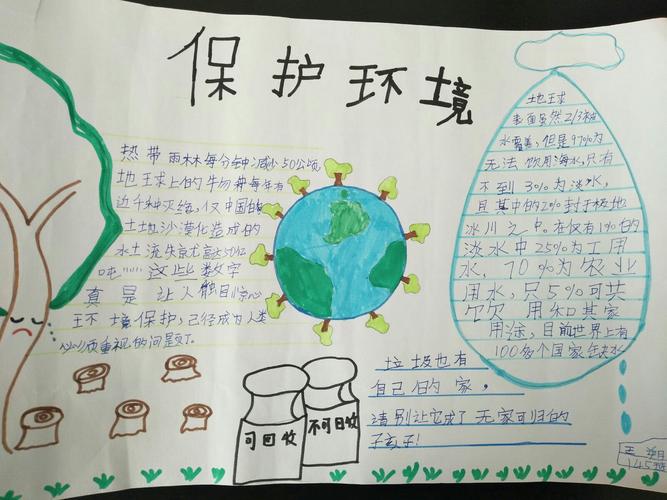 保护环境
热带雨林每分钟减少50公顷
地球上的生物种每年有
近千种灭绝,仅中国的
土地沙漠化造成的
水土流失就高达50亿
吨……这些数字
真是让人触目惊心
环境保护,已经成为人类
必须重视的问题了.
地球
表面虽然2/3被
水覆盖,但是97%为
无法饮用海水,只有
不到3%为淡水,
且其中的2%封于极地
冰川之中.在仅有1%的
淡水中25%为工用
水,70%为农业
用水,只5%可共
饮用和其家
用途,目前世界上有
100多个国家缺水
垃圾也有
自己的家,
请别让它成了无家可归的
孩子!
可回收
不可回收